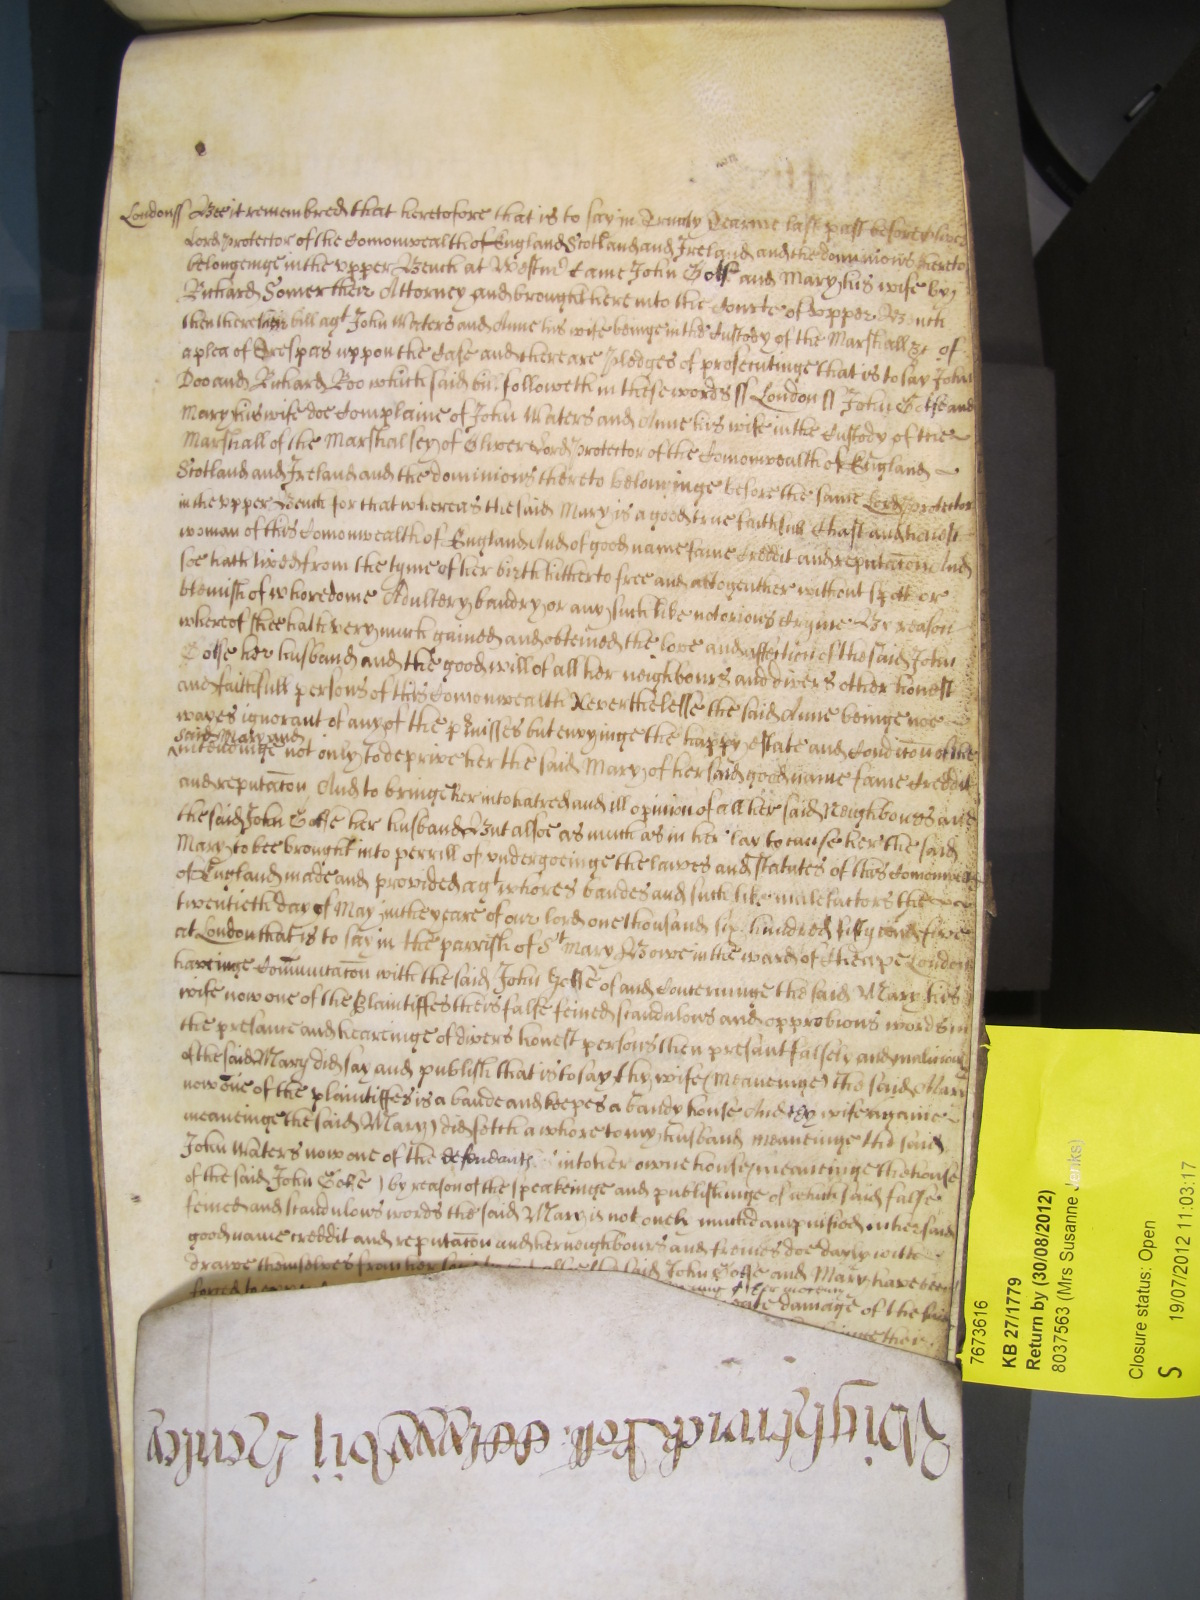 Londonss Bee it remembred that heretofore that is to say in Trinity Tearme last past before Oliver
Lord Protector of the Comonwealth of England Scotland and Ireland and the dominions thereto
belonginge in the Upper Bench at Westmr Came John Goffe and Mary his wife by
Richard Somer their Attorney and brought here into the Courte of Upper Bench
then there their bill agt John Waters and Anne his wife beinge in the Custody of the Marshall &c of
a plea of Trespas uppon the Case and there are pledges of prosecutinge that is to say John
Doo and Richard Roo which said bill followeth in these words ss London ss John Goffe and
Mary his wife doe Complaine of John Waters and Anne his wife in the Custody of the
Marshall of the Marshalsey of Oliver Lord Protector of the Comonwealth of England
Scotland and Ireland and the dominions thereto belonginge before the same Lord Protector
in the Upper Bench for that whereas the said Mary is a good true faithfull Chast and honest
woman of this Comonwealth of England And of good name fame Creddit and reputacon And
soe hath lived from the tyme of her birth hitherto free and altogeather without spott or
blemish of whoredome Adultery bawdry or any such like notorious Cryme By reason
whereof shee hath very much gained and obteined the love and affection of the said John
Goffe her husband and the good will of all her neighbours and divers other honest
and faithfull persons of this Comonwealth Neverthelesse the said Anne beinge noe
wayes ignorant of any of the pmisses but envyinge the happy estate and Condicon of the
said Mary and
intendinge not only to deprive her the said Mary of her said good name fame Creddit
and reputacon And to bringe her into hatred and ill opinion of all her said Neighbours and
the said John Goffe her husband But alsoe as much as in her lay to cause her the said
Mary to bee brought into perrill of undergoeinge the lawes and statutes of this Comonwealth
of England made and provided agt whores baudes and such like malefactors the
twentieth day of May in the yeare of our lord one thousand six hundred fifty and five
at London that is to say in the parrish of St Mary Bowe in the ward of Cheape London
haveinge Comunicacon with the said John Goffe of and Concerninge the said Mary his
wife now one of the Plaintiffes theis false feined scandulous and opprobious words in
the presance and heareinge of divers honest persons then presant falsely and maliciously
of the said Mary did say and publish that is to say thy wife (meaneinge) the said Mary
now one of the plaintiffes is a baude and keepes a baudy house And thy wife againe
meaneinge the said Mary) did fetch a whore to my husband meaneinge the said
John Waters now one of the defendants into her owne house (meaneinge the house
of the said John Goffe) by reason of the speakeinge and publishinge of which said false
feined and scandulous words the said Mary is not onely much dampnified in her said
good name creddit and reputacon and her neighbours and freinds doe dayly with
drawe themselves from her said John Goffe and Mary have been
forced to
damage of the said
Roll Henley
7673616
KB 27/1779
Return by (30/08/2012)
8037563 (Mrs Susanne Jenks)
Closure status: Open
S 19/07/2012 11:03:17